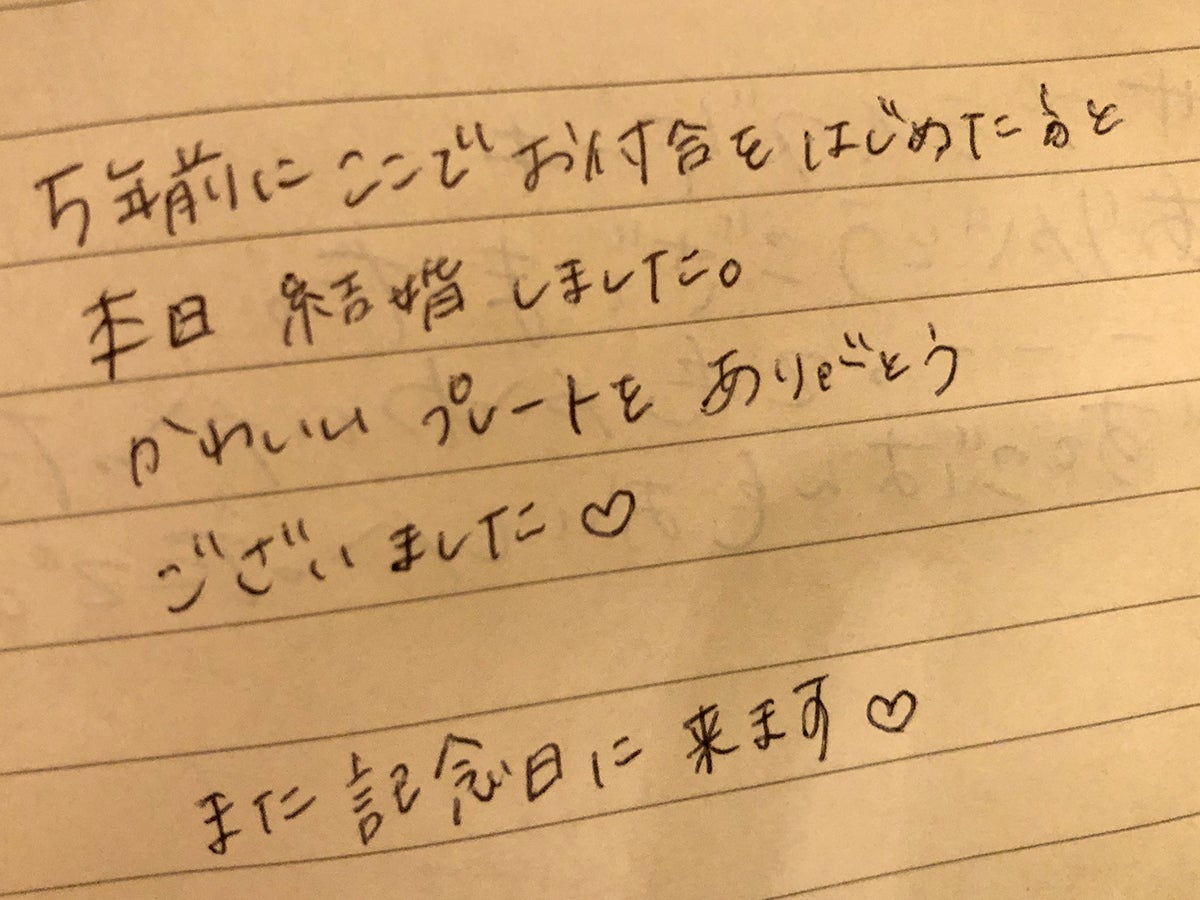 5年前にここでお付合をはじめた と
本日 結婚しました。
かわいい プレートを ありがとう
ございました♡
また 記念日に 来ます♡